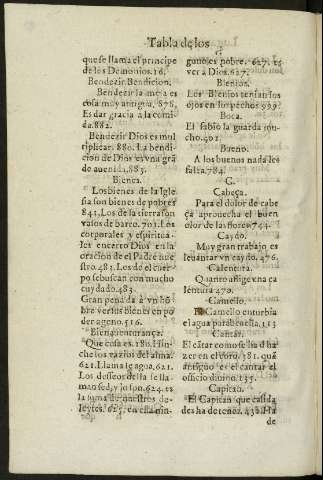 Tabla de los
que se llama el principe
de los Demonios. 16.
Bendezir. Bendicion.
Bendezir la mesa es
cosa muy antigua. 878.
Es dar gracia a la comi-
da. 882.
Bendezir Dios es mul
tiplicar. 880. La bendi-
cion de Dios es vna grã
de auenida. 883.
Bienes.
Los bienes de la Igle
sia son bienes de pobres
841. Los de la tierra son
vasos de barro. 701. Los
corporales y espiritua
les encerro Dios en la
oracion de el Padre nue
stro. 481. Los de el cuer-
po se buscan con mucho
cuydado. 483.
Gran pena dà a vn hõ
bre verse sus bienes en po
der ageno. 516.
Bienauenturança.
Que cosa es. 180. Hin-
che los vazios del alma.
621. Llamase agua. 621.
Los desseos della se lla-
man sed, y lo son. 624. es
la suma de nuestros de-
leytes. 625. en ella nin-
guno es pobre. 627. es
ver a Dios. 627.
Bienios.
Los Bienios tenian los
ojos en los pechos 999.
Boca.
El sabio la guarda mu-
cho. 402.
Bueno.
A los buenos nada les
falta. 784.
C.
Cabeça.
Para el dolor de cabe
ça aprouecha el buen
olor de las flores. 744.
Caydo.
Muy gran trabajo es
leuantar vn caydo. 476.
Calentura.
Quanto aflige vna ca
lentura 470.
Camello.
El Camello enturbia
el agua para beuerla. 113
Cantar.
El cãtar como se ha d ha
zer en el coro. 381. quã
antiguo es el cantar el
officio diuino. 135.
Capitan.
El Capitan que calida
des ha de tener. 438. Ha
de